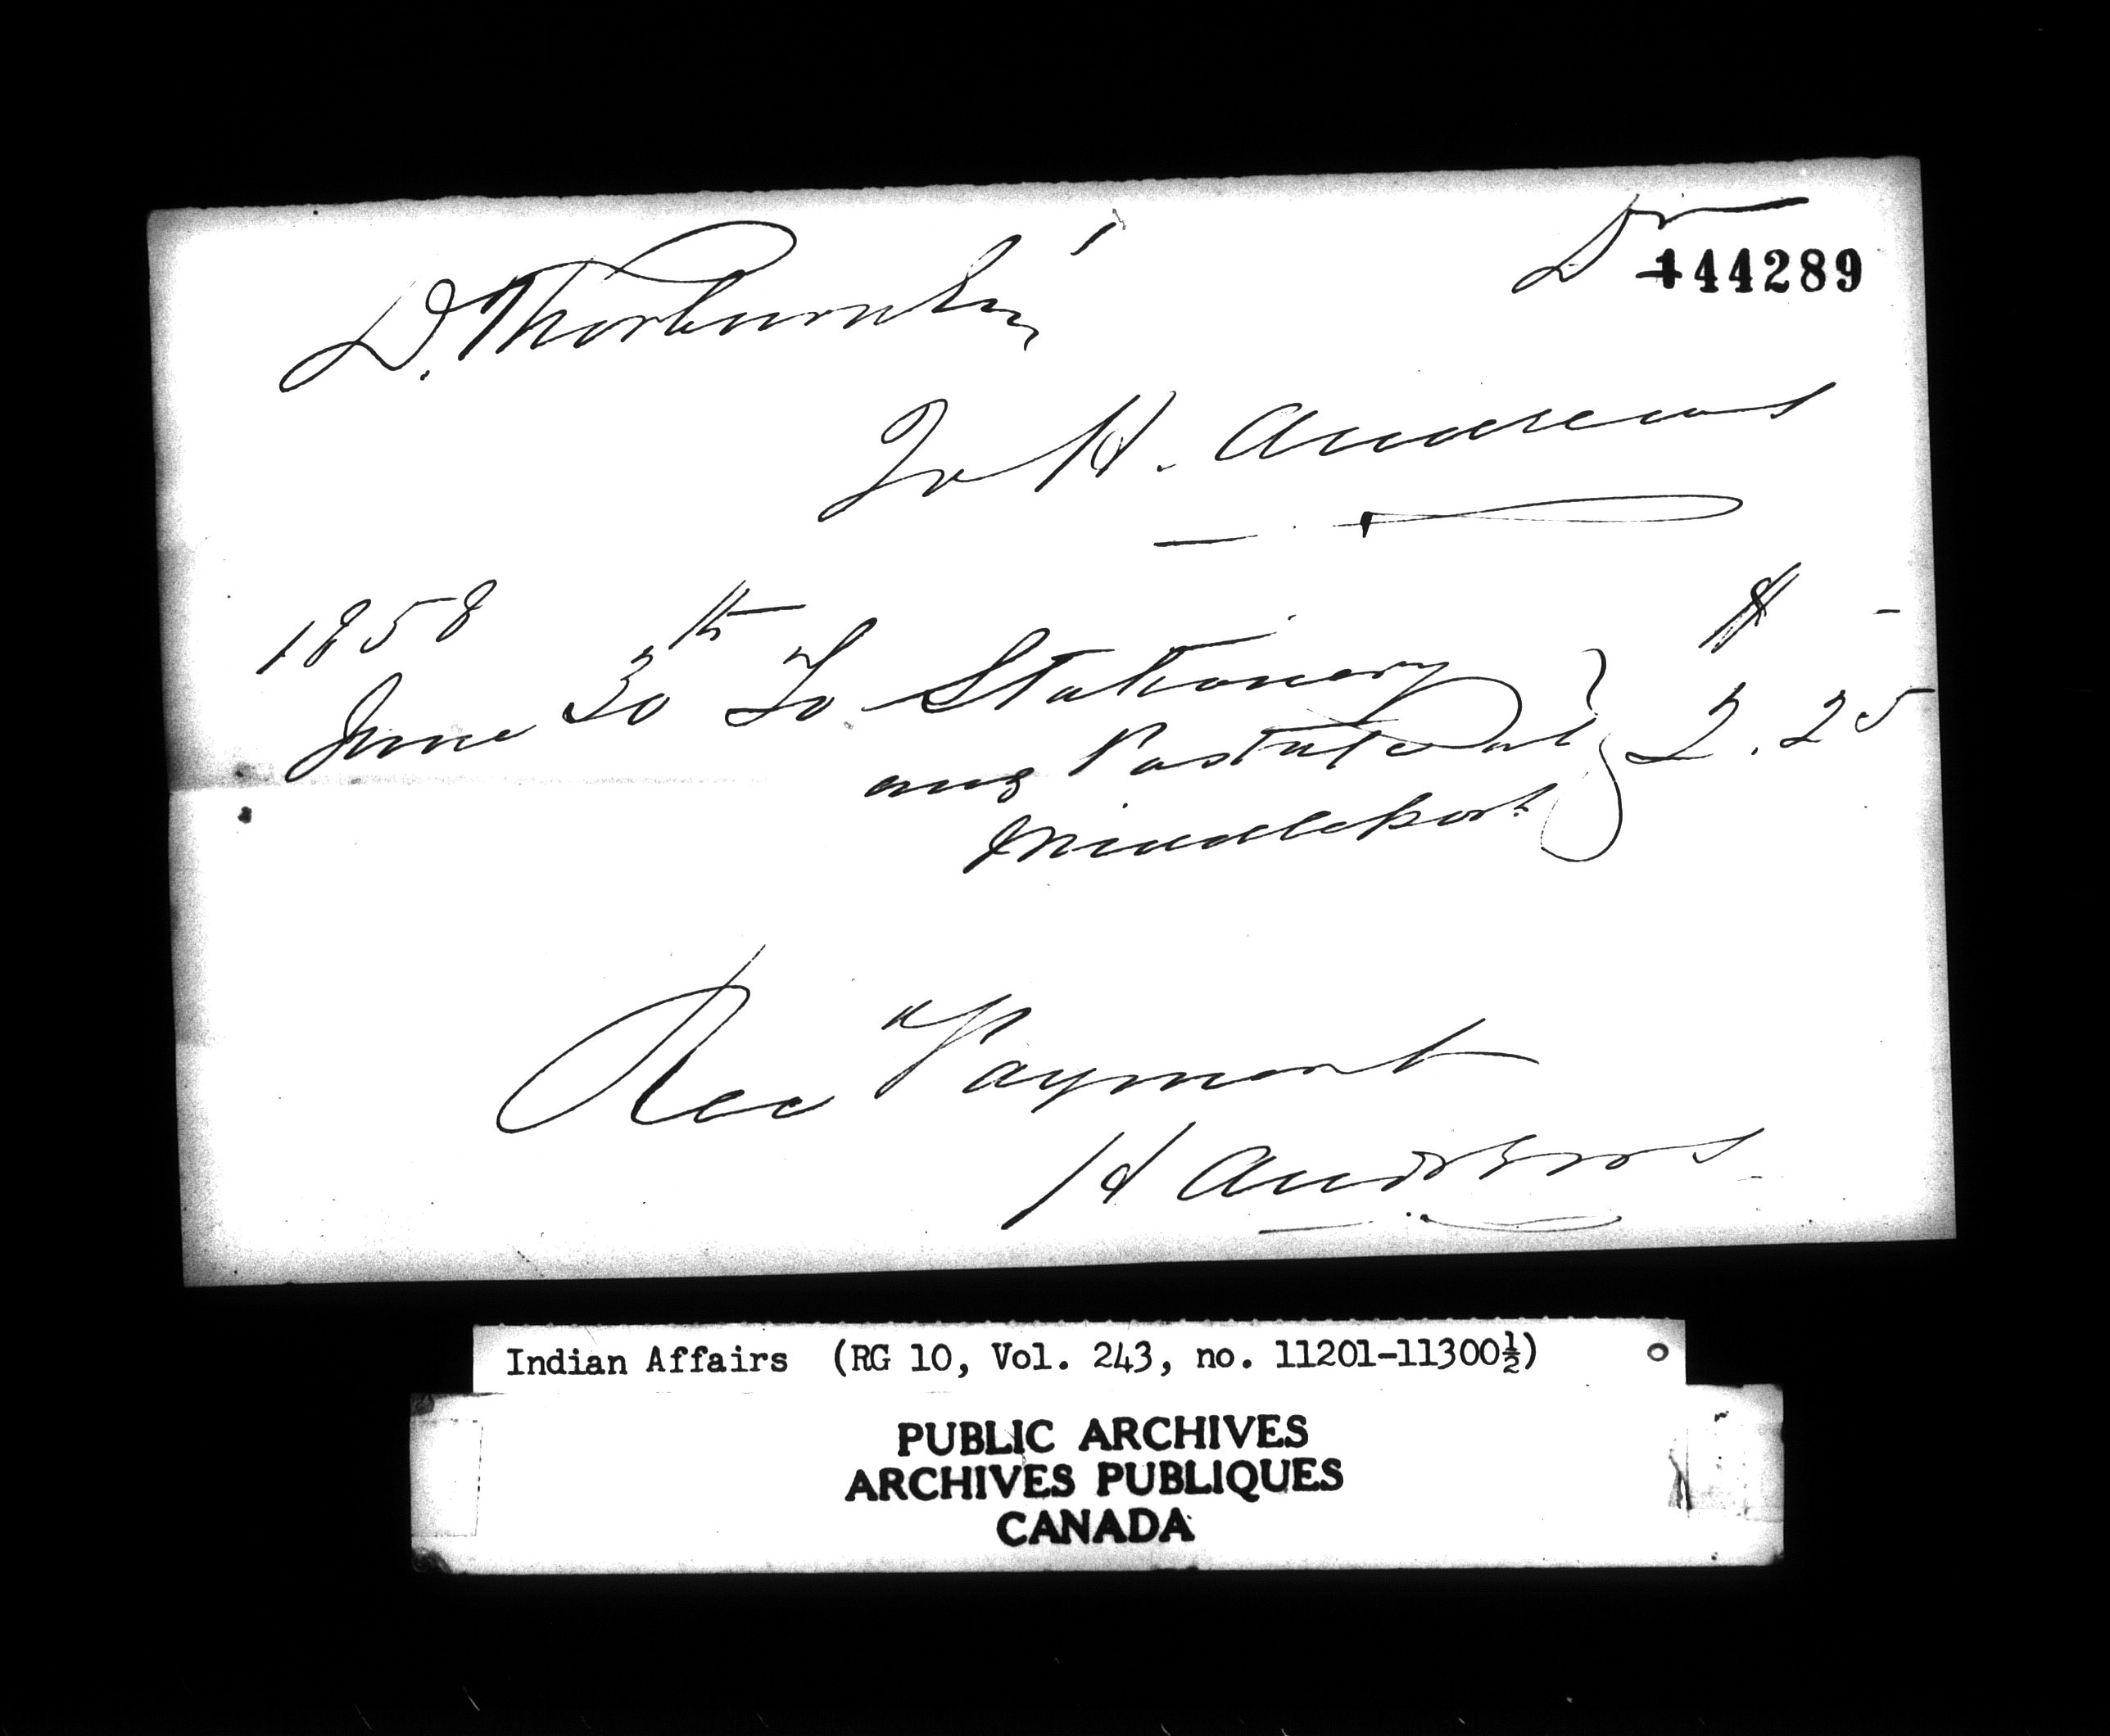 D. Thorburn Esq Dr
144289
To H. Andrews
1858 $
June 30th To Stationery
and Postage at 2.25
Middleport
Recd Payment
H Andrews
Indian Affairs (RG 10, Vol. 243, no. 11201-11300½)
PUBLIC ARCHIVES
ARCHIVES PUBLIQUES
CANADA